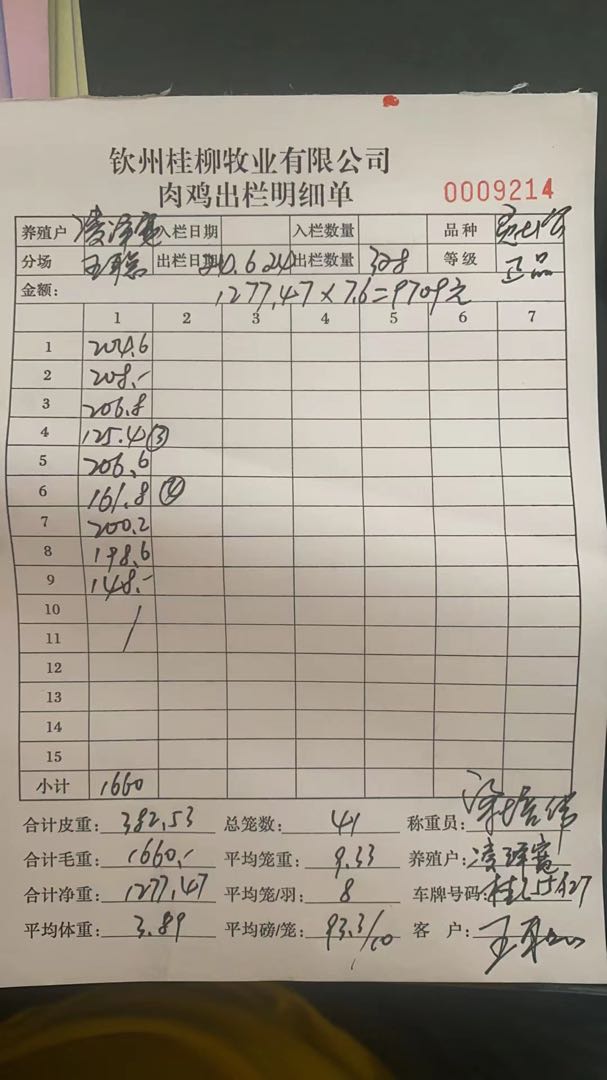 钦州桂柳牧业有限公司
肉鸡出栏明细单 0009214
养殖户 凌泽宽 入栏日期 入栏数量 品种
分场 出栏日期 出栏数量 328 等级 正品
金额： 1277.47×7.6=9709元
1 2 3 4 5 6 7
1 204.6
2 208.-
3 206.8
4 125.4 ③
5 206.6
6 161.8 ④
7 200.2
8 198.6
9 148.-
10
11
12
13
14
15
小计 1660
合计皮重： 382.53 总笼数： 41 称重员：
合计毛重： 1660.- 平均笼重： 9.33 养殖户： 凌泽宽
合计净重： 1277.47 平均笼/羽： 8 车牌号码：
平均体重： 3.89 平均磅/笼： 93.3/10 客户：